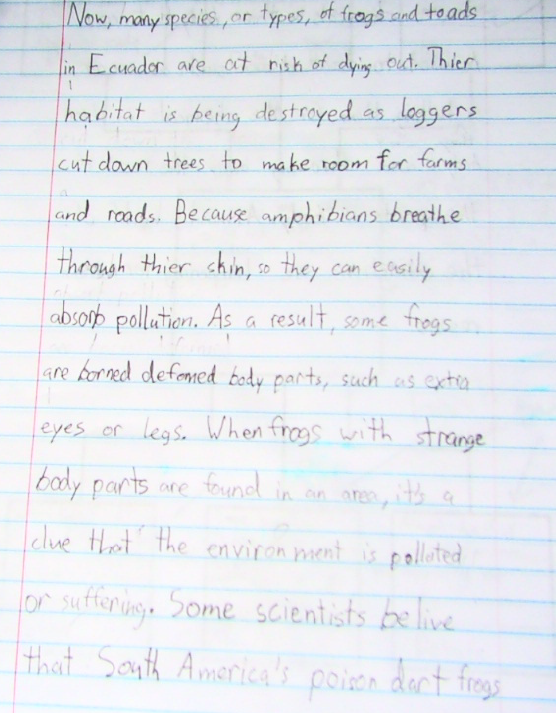 Now, many species, or types, of frogs and toads
in Ecuador are at risk of dying out. Thier
habitat is being destroyed as loggers
cut down trees to make room for farms
and roads. Because amphibians breathe
through thier skin, so they can easily
absorb pollution. As a result, some frogs
are borned defomed body parts, such as extra
eyes or legs. When frogs with strange
body parts are found in an area, it's a
clue that the environment is polluted
or suffering. Some scientists belive
that South America's poison dart frogs